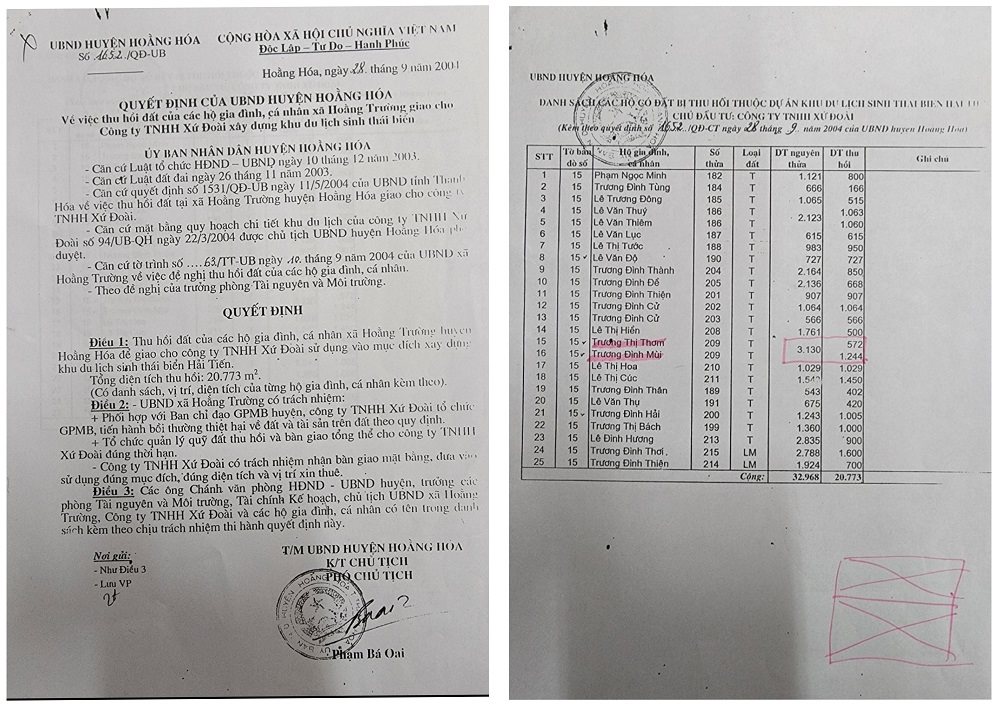 UBND HUYỆN HOẰNG HÓA
Số 1652/QĐ-UB
CỘNG HÒA XÃ HỘI CHỦ NGHĨA VIỆT NAM
Độc Lập – Tự Do – Hạnh Phúc
Hoằng Hóa, ngày 28. tháng 9 năm 2004
QUYẾT ĐỊNH CỦA UBND HUYỆN HOẰNG HÓA
Về việc thu hồi đất của các hộ gia đình, cá nhân xã Hoằng Trường giao cho
Công ty TNHH Xứ Đoài xây dựng khu du lịch sinh thái biển
ỦY BAN NHÂN DÂN HUYỆN HOẰNG HÓA
- Căn cứ Luật tổ chức HĐND – UBND ngày 10 tháng 12 năm 2003.
- Căn cứ Luật đất đai ngày 26 tháng 11 năm 2003.
- Căn cứ quyết định số 1531/QĐ-UB ngày 11/5/2004 của UBND tỉnh Thanh
Hóa về việc thu hồi đất tại xã Hoằng Trường huyện Hoằng Hóa giao cho công ty
TNHH Xứ Đoài.
- Căn cứ mặt bằng quy hoạch chi tiết khu du lịch của công ty TNHH Xứ
Đoài số 94/UB-QH ngày 22/3/2004 được chủ tịch UBND huyện Hoằng Hóa phê
duyệt.
- Căn cứ tờ trình số ....63/TT-UB ngày 10. tháng 9 năm 2004 của UBND xã
Hoằng Trường về việc đề nghị thu hồi đất của các hộ gia đình, cá nhân.
- Theo đề nghị của trưởng phòng Tài nguyên và Môi trường.
QUYẾT ĐỊNH
Điều 1: Thu hồi đất của các hộ gia đình, cá nhân xã Hoằng Trường huyện
Hoằng Hóa để giao cho công ty TNHH Xứ Đoài sử dụng vào mục đích xây dựng
khu du lịch sinh thái biển Hải Tiến.
Tổng diện tích thu hồi: 20.773 m².
(Có danh sách, vị trí, diện tích của từng hộ gia đình, cá nhân kèm theo).
Điều 2: - UBND xã Hoằng Trường có trách nhiệm:
+ Phối hợp với Ban chỉ đạo GPMB huyện, công ty TNHH Xứ Đoài tổ chức
GPMB, tiến hành bồi thường thiệt hại về đất và tài sản trên đất theo quy định.
+ Tổ chức quản lý quỹ đất thu hồi và bàn giao tổng thể cho công ty TNHH
Xứ Đoài đúng thời hạn.
- Công ty TNHH Xứ Đoài có trách nhiệm nhận bàn giao mặt bằng, đưa vào
sử dụng đúng mục đích, đúng diện tích và vị trí xin thuê.
Điều 3: Các ông Chánh văn phòng HĐND - UBND huyện, trưởng các
phòng Tài nguyên và Môi trường, Tài chính Kế hoạch, chủ tịch UBND xã Hoằng
Trường, Công ty TNHH Xứ Đoài và các hộ gia đình, cá nhân có tên trong danh
sách kèm theo chịu trách nhiệm thi hành quyết định này.
Nơi gửi:
- Như Điều 3
- Lưu VP
T/M UBND HUYỆN HOẰNG HÓA
K/T CHỦ TỊCH
PHÓ CHỦ TỊCH
Phạm Bá Oai
UBND HUYỆN HOẰNG HÓA
DANH SÁCH CÁC HỘ CÓ ĐẤT BỊ THU HỒI THUỘC DỰ ÁN KHU DU LỊCH SINH THÁI BIỂN HẢI
CHỦ ĐẦU TƯ: CÔNG TY TNHH XỨ ĐOÀI
(Kèm theo quyết định số 1652 /QĐ-CT ngày 28 tháng 9. năm 2004 của UBND huyện Hoằng Hóa)
STT Tờ bản đồ số Hộ gia đình, cá nhân Số thửa Loại đất DT nguyên thửa DT thu hồi Ghi chú
1 15 Phạm Ngọc Minh 182 T 1.121 800
2 15 Trương Đình Tùng 184 T 666 166
3 15 Lê Trương Đông 185 T 1.065 515
4 15 Lê Văn Thuỷ 186 T 2.123 1.063
5 15 Lê Văn Thiêm 186 T 1.060
6 15 Lê Văn Lục 187 T 615 615
7 15 Lê Thị Tước 188 T 983 950
8 15 Lê Văn Độ 190 T 727 727
9 15 Trương Đình Thành 204 T 2.164 850
10 15 Trương Đình Để 205 T 2.136 668
11 15 Trương Đình Thiện 201 T 907 907
12 15 Trương Đình Cử 202 T 1.064 1.064
13 15 Trương Đình Cử 203 T 566 566
14 15 Lê Thị Hiền 208 T 1.761 500
15 15 Trương Thị Thơm 209 T 3.130 572
16 15 Trương Đình Mùi 209 T 1.244
17 15 Lê Thị Hoa 210 T 1.029 1.029
18 15 Lê Thị Cúc 211 T 1.450
19 15 Trương Đình Thân 189 T 543 402
20 15 Lê Văn Thụ 191 T 675 420
21 15 Trương Đình Hải 200 T 1.243 1.005
22 15 Trương Thị Bách 199 T 1.360 1.000
23 15 Lê Đình Hương 213 T 2.835 900
24 15 Trương Đình Thơi 215 LM 2.788 1.600
25 15 Trương Đình Thiện 214 LM 1.924 700
Cộng: 32.968 20.773